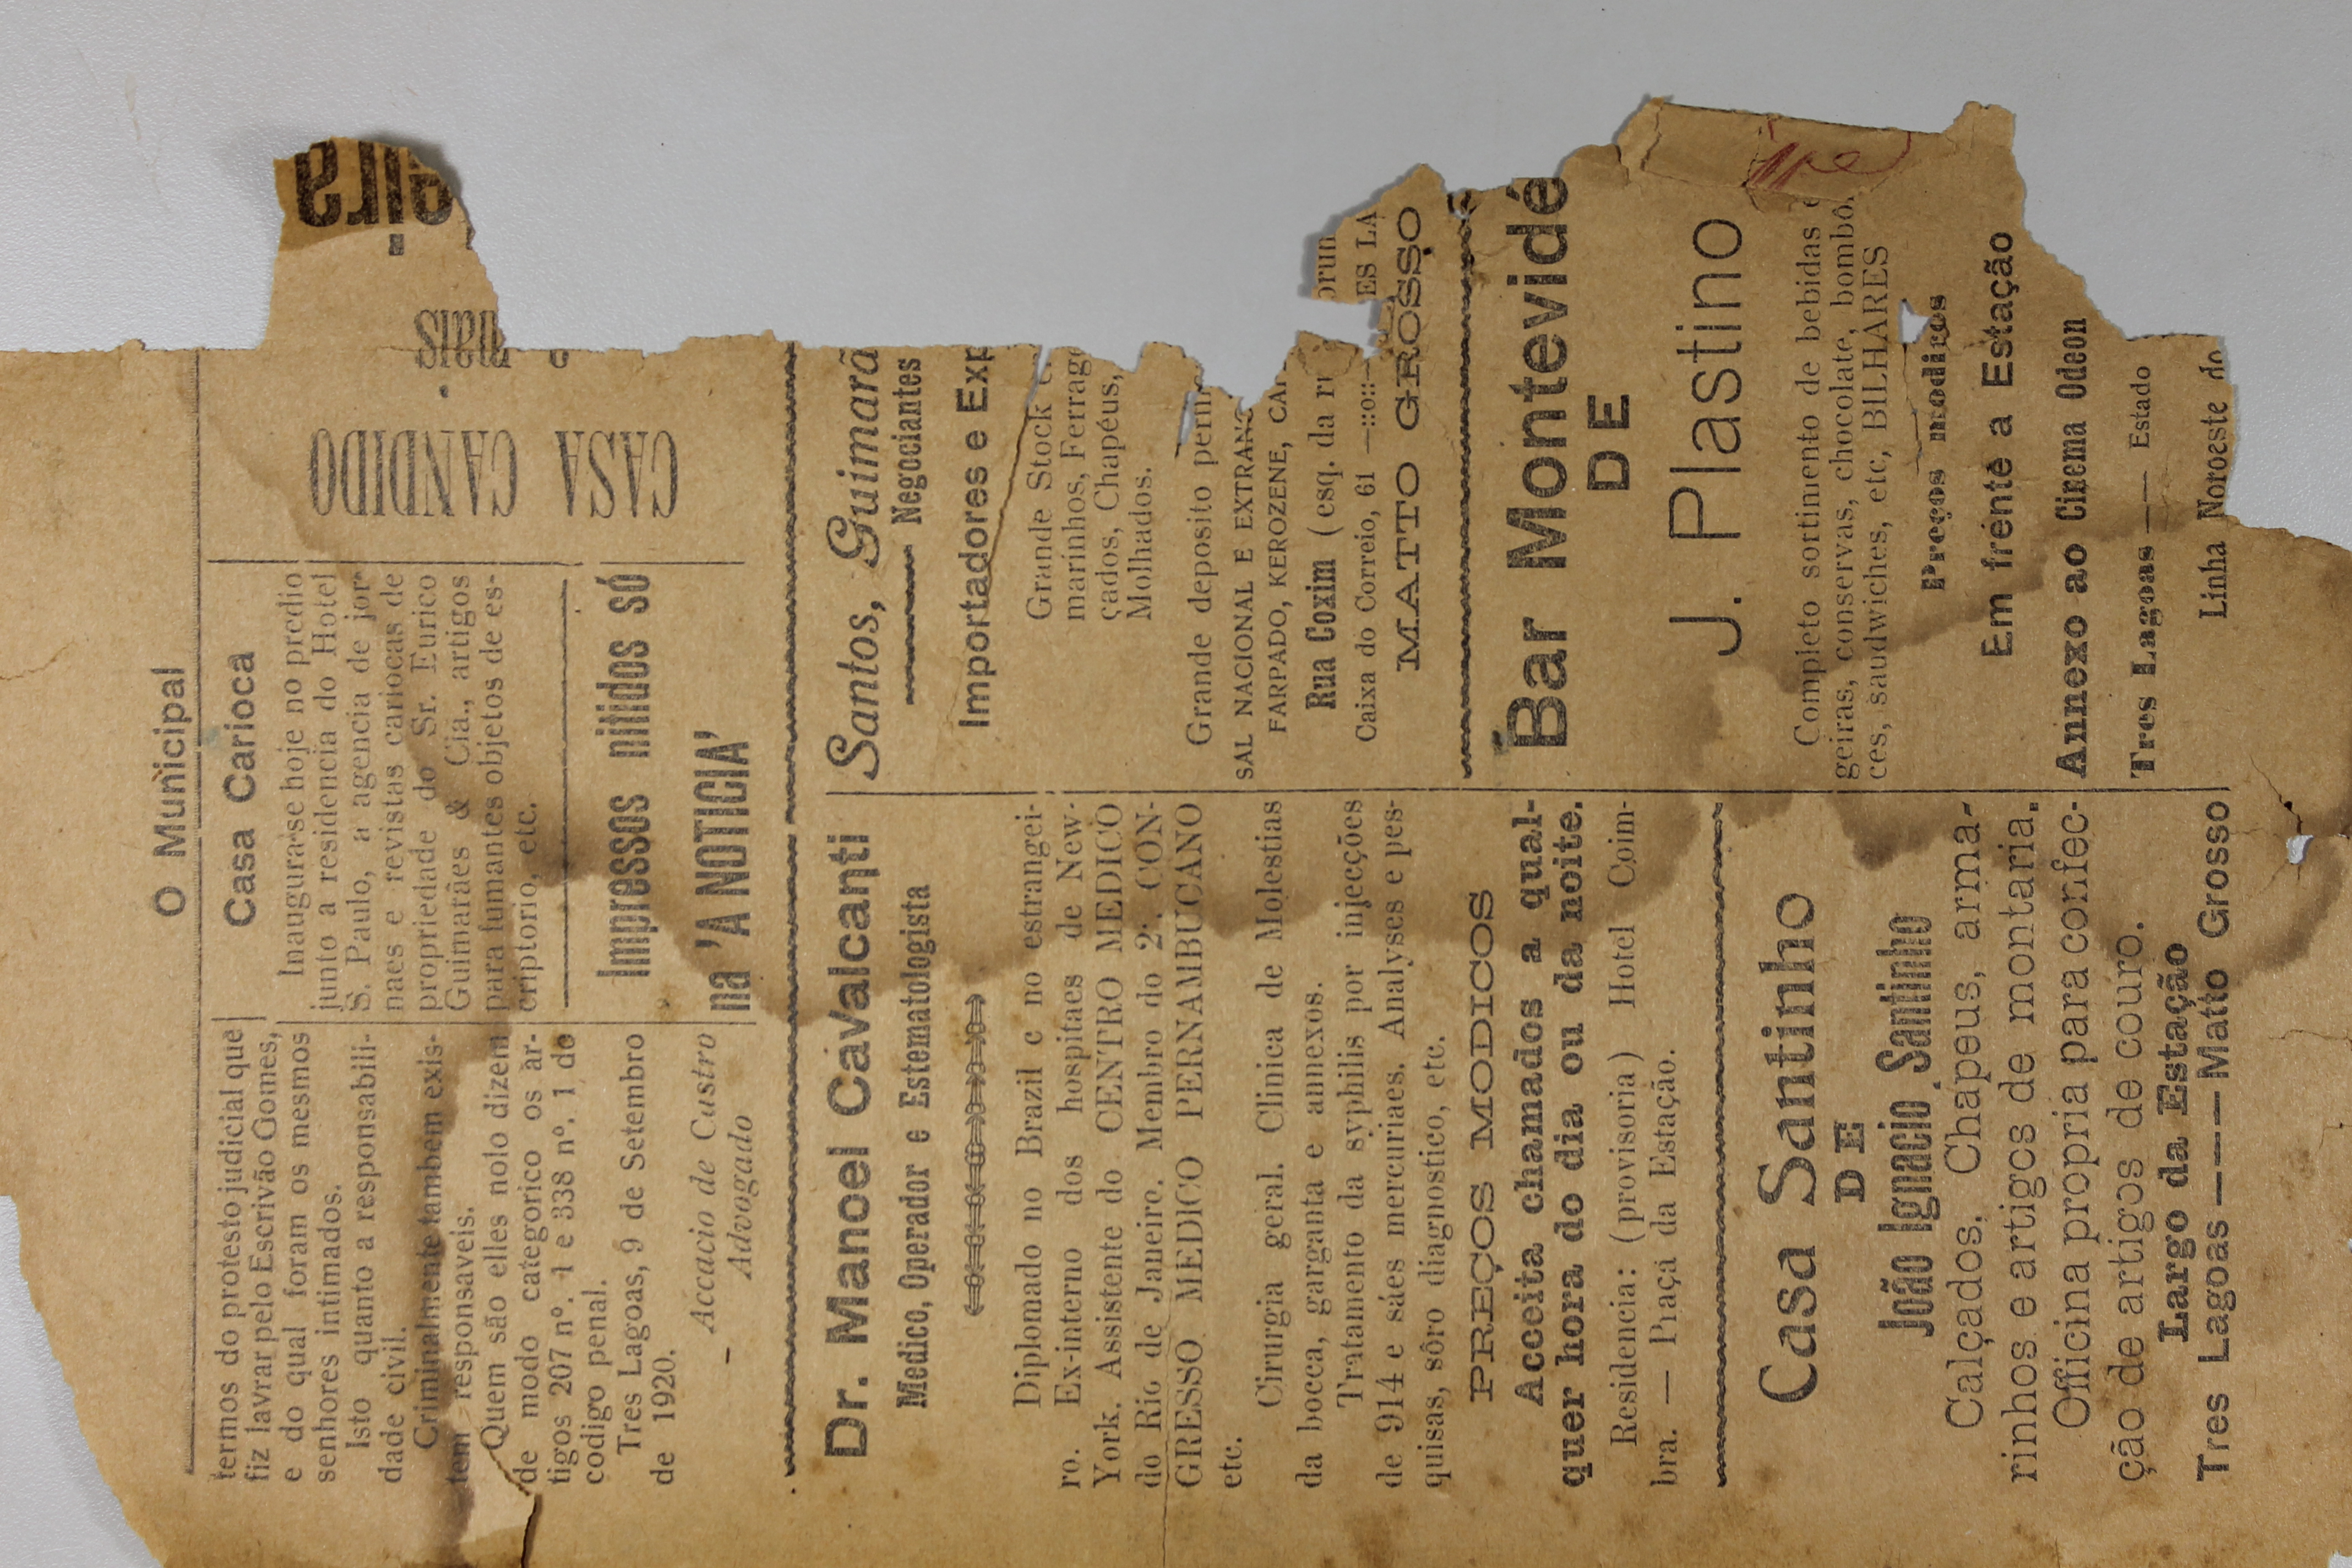 O Municipal
termos do protesto judicial que
fiz lavrar pelo Escrivão Gomes,
e do qual foram os mesmos
senhores intimados.
Isto quanto a responsabili-
dade civil.
Criminalmente tambem exis-
tem responsaveis.
Quem são elles nolo dizem
de modo categorico os ar-
tigos 207 nº. 1 e 338 nº. 1 do
codigo penal.
Tres Lagoas, 9 de Setembro
de 1920.
Accacio de Castro
Advogado
Casa Carioca
Inaugura-se hoje no predio
junto a residencia do Hotel
S. Paulo, a agencia de jor-
naes e revistas cariocas de
propriedade do Sr. Eurico
Guimarães & Cia., artigos
para fumantes objetos de es-
criptorio, etc.
Impressos nitidos só
na 'A NOTICIA'
CASA CANDIDO
mais
eira
Dr. Manoel Cavalcanti
Medico, Operador e Estematologista
Diplomado no Brazil e no estrangei-
ro. Ex-interno dos hospitaes de New-
York. Assistente do CENTRO MEDICO
do Rio de Janeiro. Membro do 2º. CON-
GRESSO MEDICO PERNAMBUCANO
etc.
Cirurgia geral. Clinica de Molestias
da bocca, garganta e annexos.
Tratamento da syphilis por injecções
de 914 e sáes mercuriaes. Analyses e pes-
quisas, sôro diagnostico, etc.
PREÇOS MODICOS
Aceita chamados a qual-
quer hora do dia ou da noite.
Residencia: (provisoria) Hotel Coim-
bra. — Praça da Estação.
Casa Santinho
DE
João Ignacio Santinho
Calçados, Chapeus, arma-
rinhos e artigos de montaria.
Officina propria para confec-
ção de artigos de couro.
Largo da Estação
Tres Lagoas ——— Matto Grosso
Santos, Guimarã
Negociantes
Importadores e Exp
Grande Stock
marinhos, Ferrage
çados, Chapéus,
Molhados.
Grande deposito perm
SAL NACIONAL E EXTRANG
FARPADO, KEROZENE, CAL
Rua Coxim (esq. da ru
Caixa do Correio, 61 —::o::— ES LA
MATTO GROSSO
Bar Montevidé
DE
J. Plastino
Completo sortimento de bebidas e
geiras, conservas, chocolate, bombo
ces, saudwiches, etc, BILHARES
Preços modicos
Em frente a Estação
Annexo ao Cinema Odeon
Tres Lagoas —— Estado
Linha Noroeste do